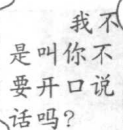 我不
是叫你不
要开口说
话吗？